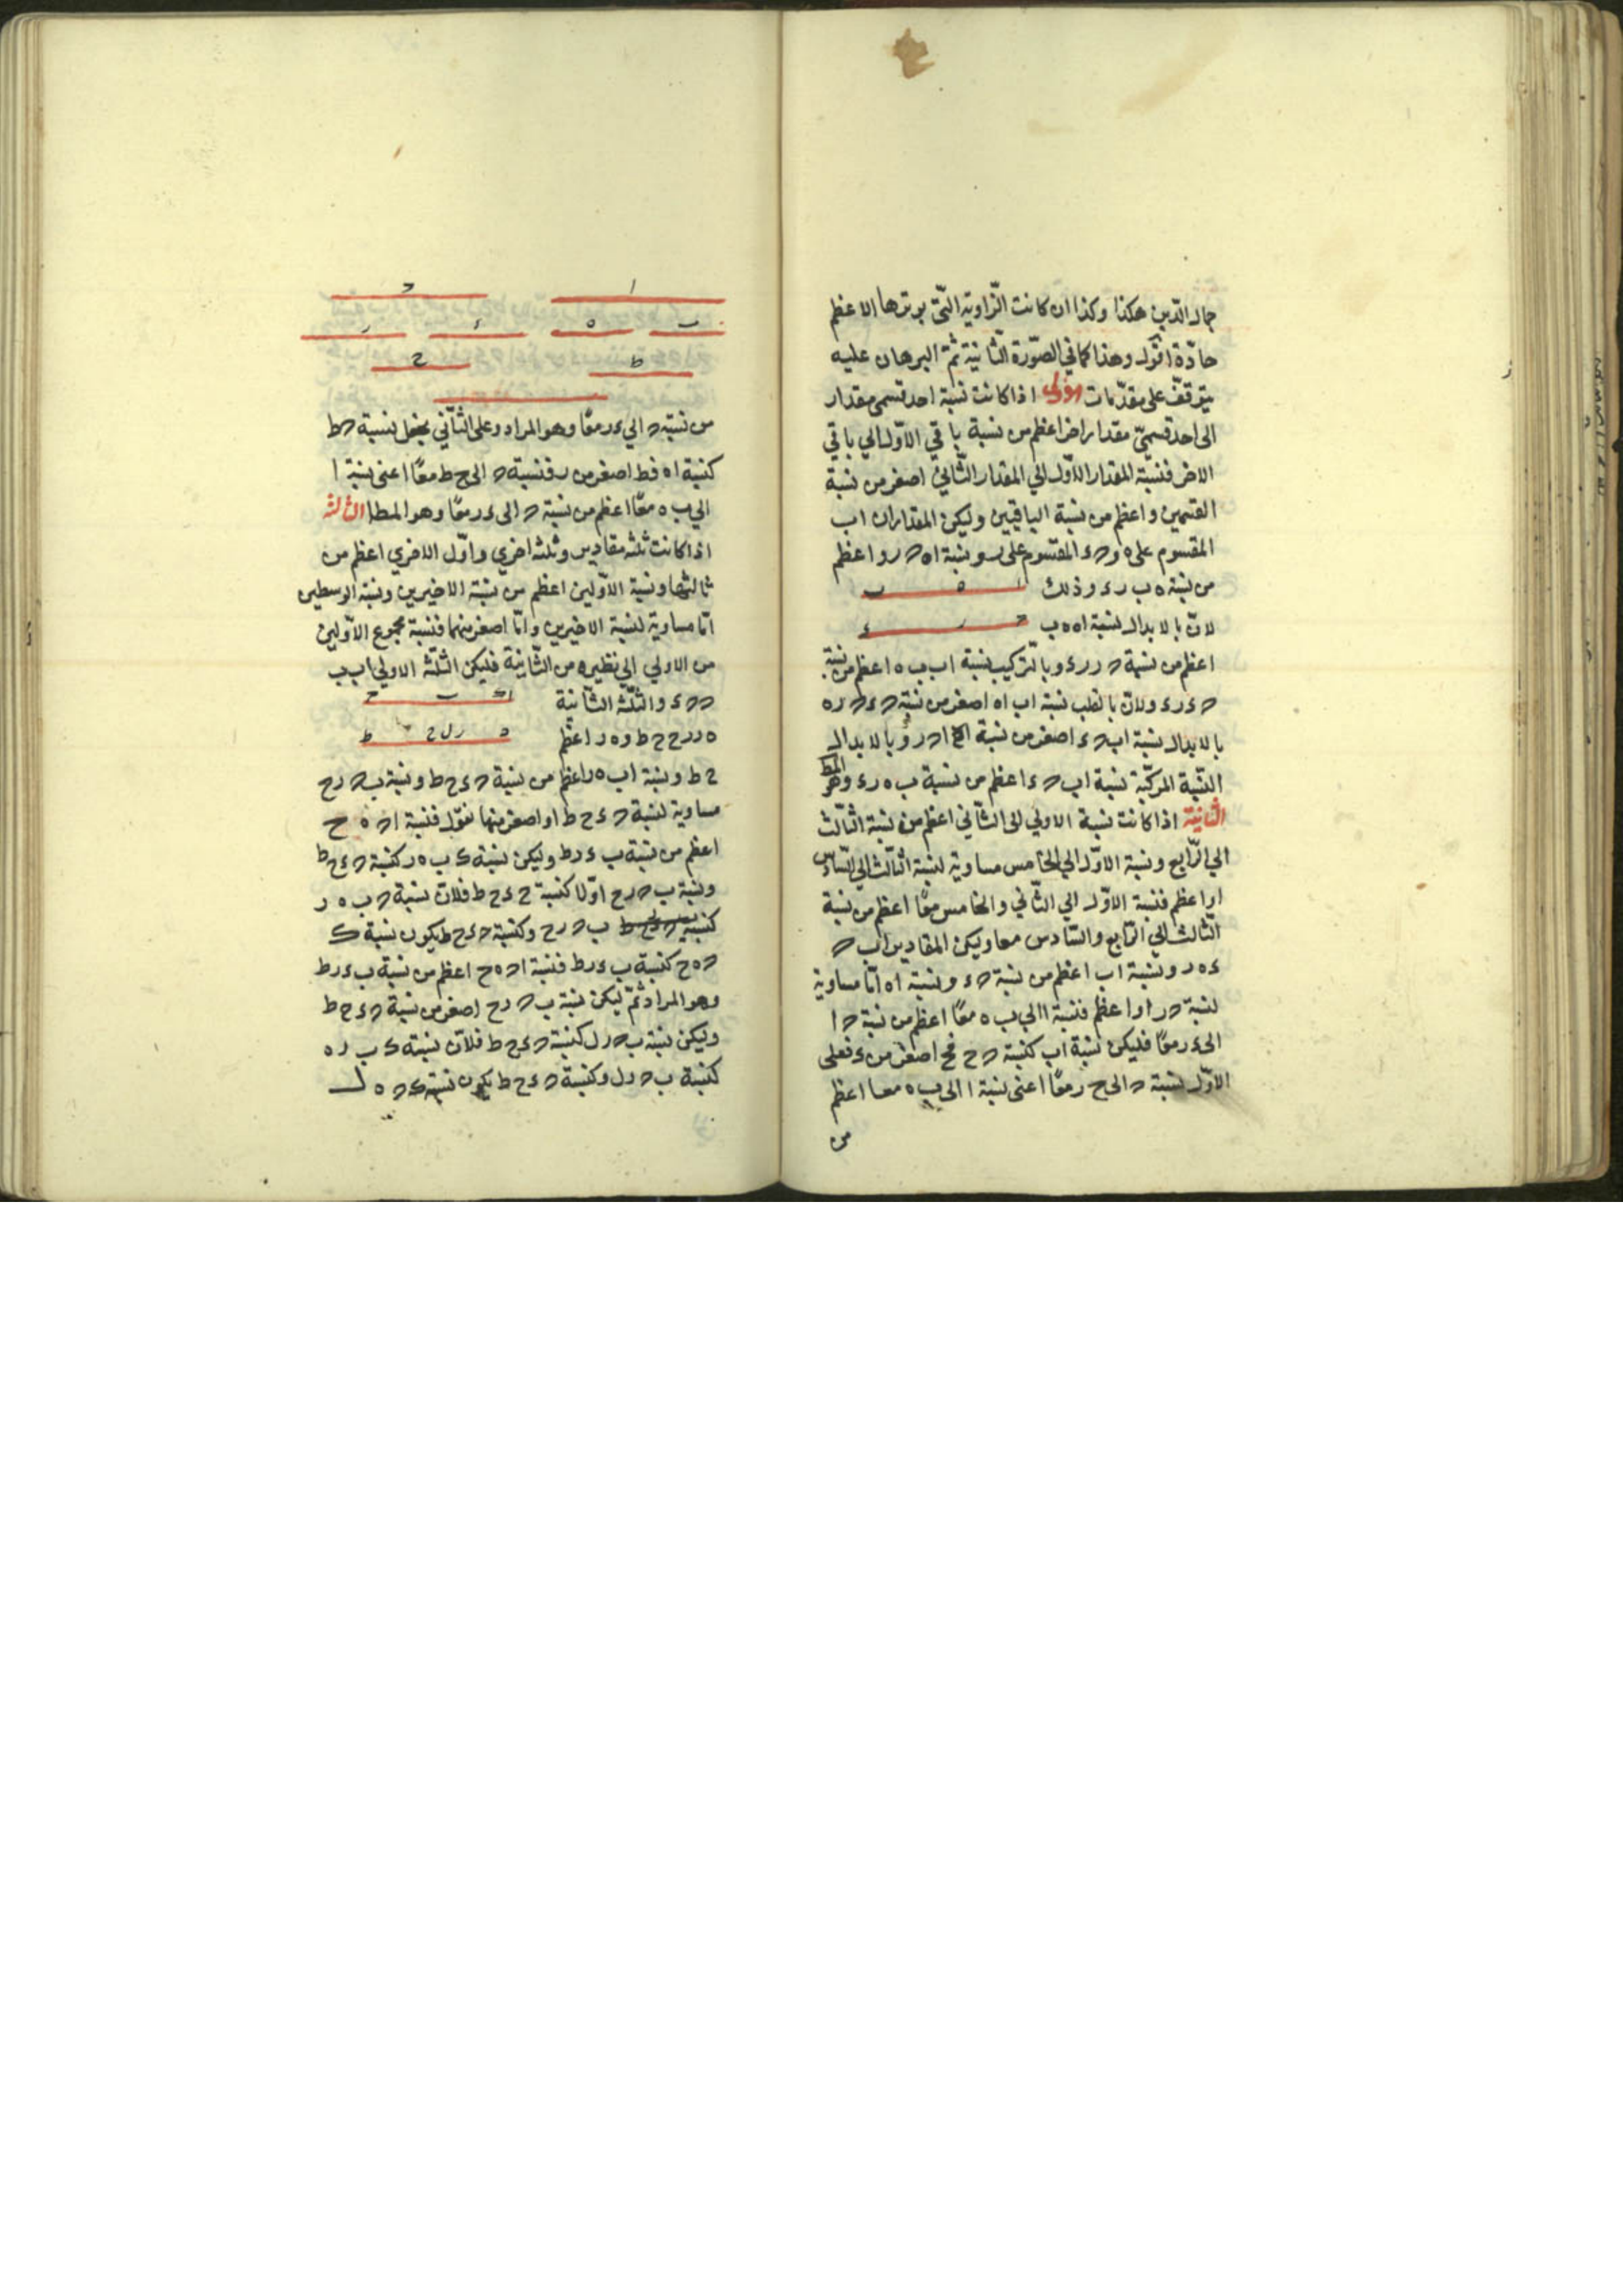 جمال الدين هكذا وكذا ان كانت الزاوية التي يوترها الاعظم
حادة اقول وهذا كما في الصورة الثانية ثم البرهان عليه
يتوقف على مقدمات الاولى اذا كانت نسبة احد قسمي مقدار
الى احد قسمي مقدار اخر اعظم من نسبة باقي الاول الي باقي
الاخر فنسبة المقدار الاول الي المقدار الثاني اصغر من نسبة
القسمين واعظم من نسبة الباقيين وليكن المقداران اب
المقسوم على ه و حء المقسوم على ر ونسبة اه حر واعظم
من نسبة ه ب رء وذلك
ا ه ب
لان بالابدال نسبة اه ه ب
ح ر ء
اعظم من نسبة حر رء وبالتركيب نسبة اب ب ه اعظم من نسبة
حء رء ولان بالقلب نسبة اب اه اصغر من نسبة حء حر ه
بالابدال نسبة اب حء اصغر من نسبة اه حر وبالابدال
النسبة المركبة نسبة اب حء اعظم من نسبة ب ه رء وهو المط
الثانية اذا كانت نسبة الاولي الى الثاني اعظم من نسبة الثالث
الي الرابع ونسبة الاول الي الخامس مساوية لنسبة الثالث الي السادس
او اعظم فنسبة الاول الي الثاني والخامس معًا اعظم من نسبة
الثالث الي الرابع والسادس معا وليكن المقادير اب ح
ء ه ر ونسبة اب اعظم من نسبة حء ونسبة اه اما مساوية
لنسبة حر او اعظم فنسبة ا الي ب ه معًا اعظم من نسبة ح ا
الى ء ر معًا فليكن نسبة اب كنسبة ح ح فح اصغر من ء فعلى
الاول نسبة ح الى ح ر معًا اعنى نسبة ا الى ب ه معا اعظم
من
ا ح
ب ه ء ر
ط ح
من نسبة ح الي ء ر معًا وهو المراد وعلى الثاني نجعل نسبة ح ط
كنسبة اه فط اصغر من ر فنسبة ح الى ح ط معًا اعنى نسبة ا
الي ب ه معًا اعظم من نسبة ح الى ء ر معًا وهو المط الثالثة
اذا كانت ثلثة مقادير وثلثة اخري واول الاخري اعظم من
ثالثها ونسبة الاولين اعظم من نسبة الاخيرين ونسبة الوسطين
اما مساوية لنسبة الاخيرين واما اصغر منهما فنسبة مجموع الاولين
من الاولي الي نظيره من الثانية فليكن الثلثة الاولي اب ب
ح حء والثلثة الثانية
ا ك ب ح
ه ر رح ح ط و ه ر اعظم
ه ر ل ح ط
ح ط ونسبة اب ه ر اعظم من نسبة حء ح ط ونسبة ب ح رح
مساوية لنسبة حء ح ط او اصغر منها نقول فنسبة اح ه ح
اعظم من نسبة ب ء ر ط وليكن نسبة ك ب ه ر كنسبة حء ح ط
ونسبة ب ح رح اولا كنسبة حء ح ط فلان نسبة ح ب ه ر
ب ح رح وكنسبة حء ح ط يكون نسبة ك
ح ه ح كنسبة ب ء ر ط فنسبة اح ه ح اعظم من نسبة ب ء ر ط
وهو المراد ثم ليكن نسبة ب ح رح اصغر من نسبة حء ح ط
وليكن نسبة ب ح رل كنسبة حء ح ط فلان نسبة ك ب ر ه
كنسبة ب ح رل وكنسبة حء ح ط يكون نسبة ك ح ه ل